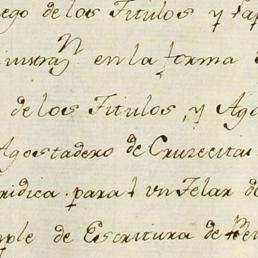 ego de los Titulos y Pap
inistraⁿ en la forma
de los Titulos, y Ago
Agostadero de Cruzecitas
ridica para un Telar de
mple de Escritura de Ven